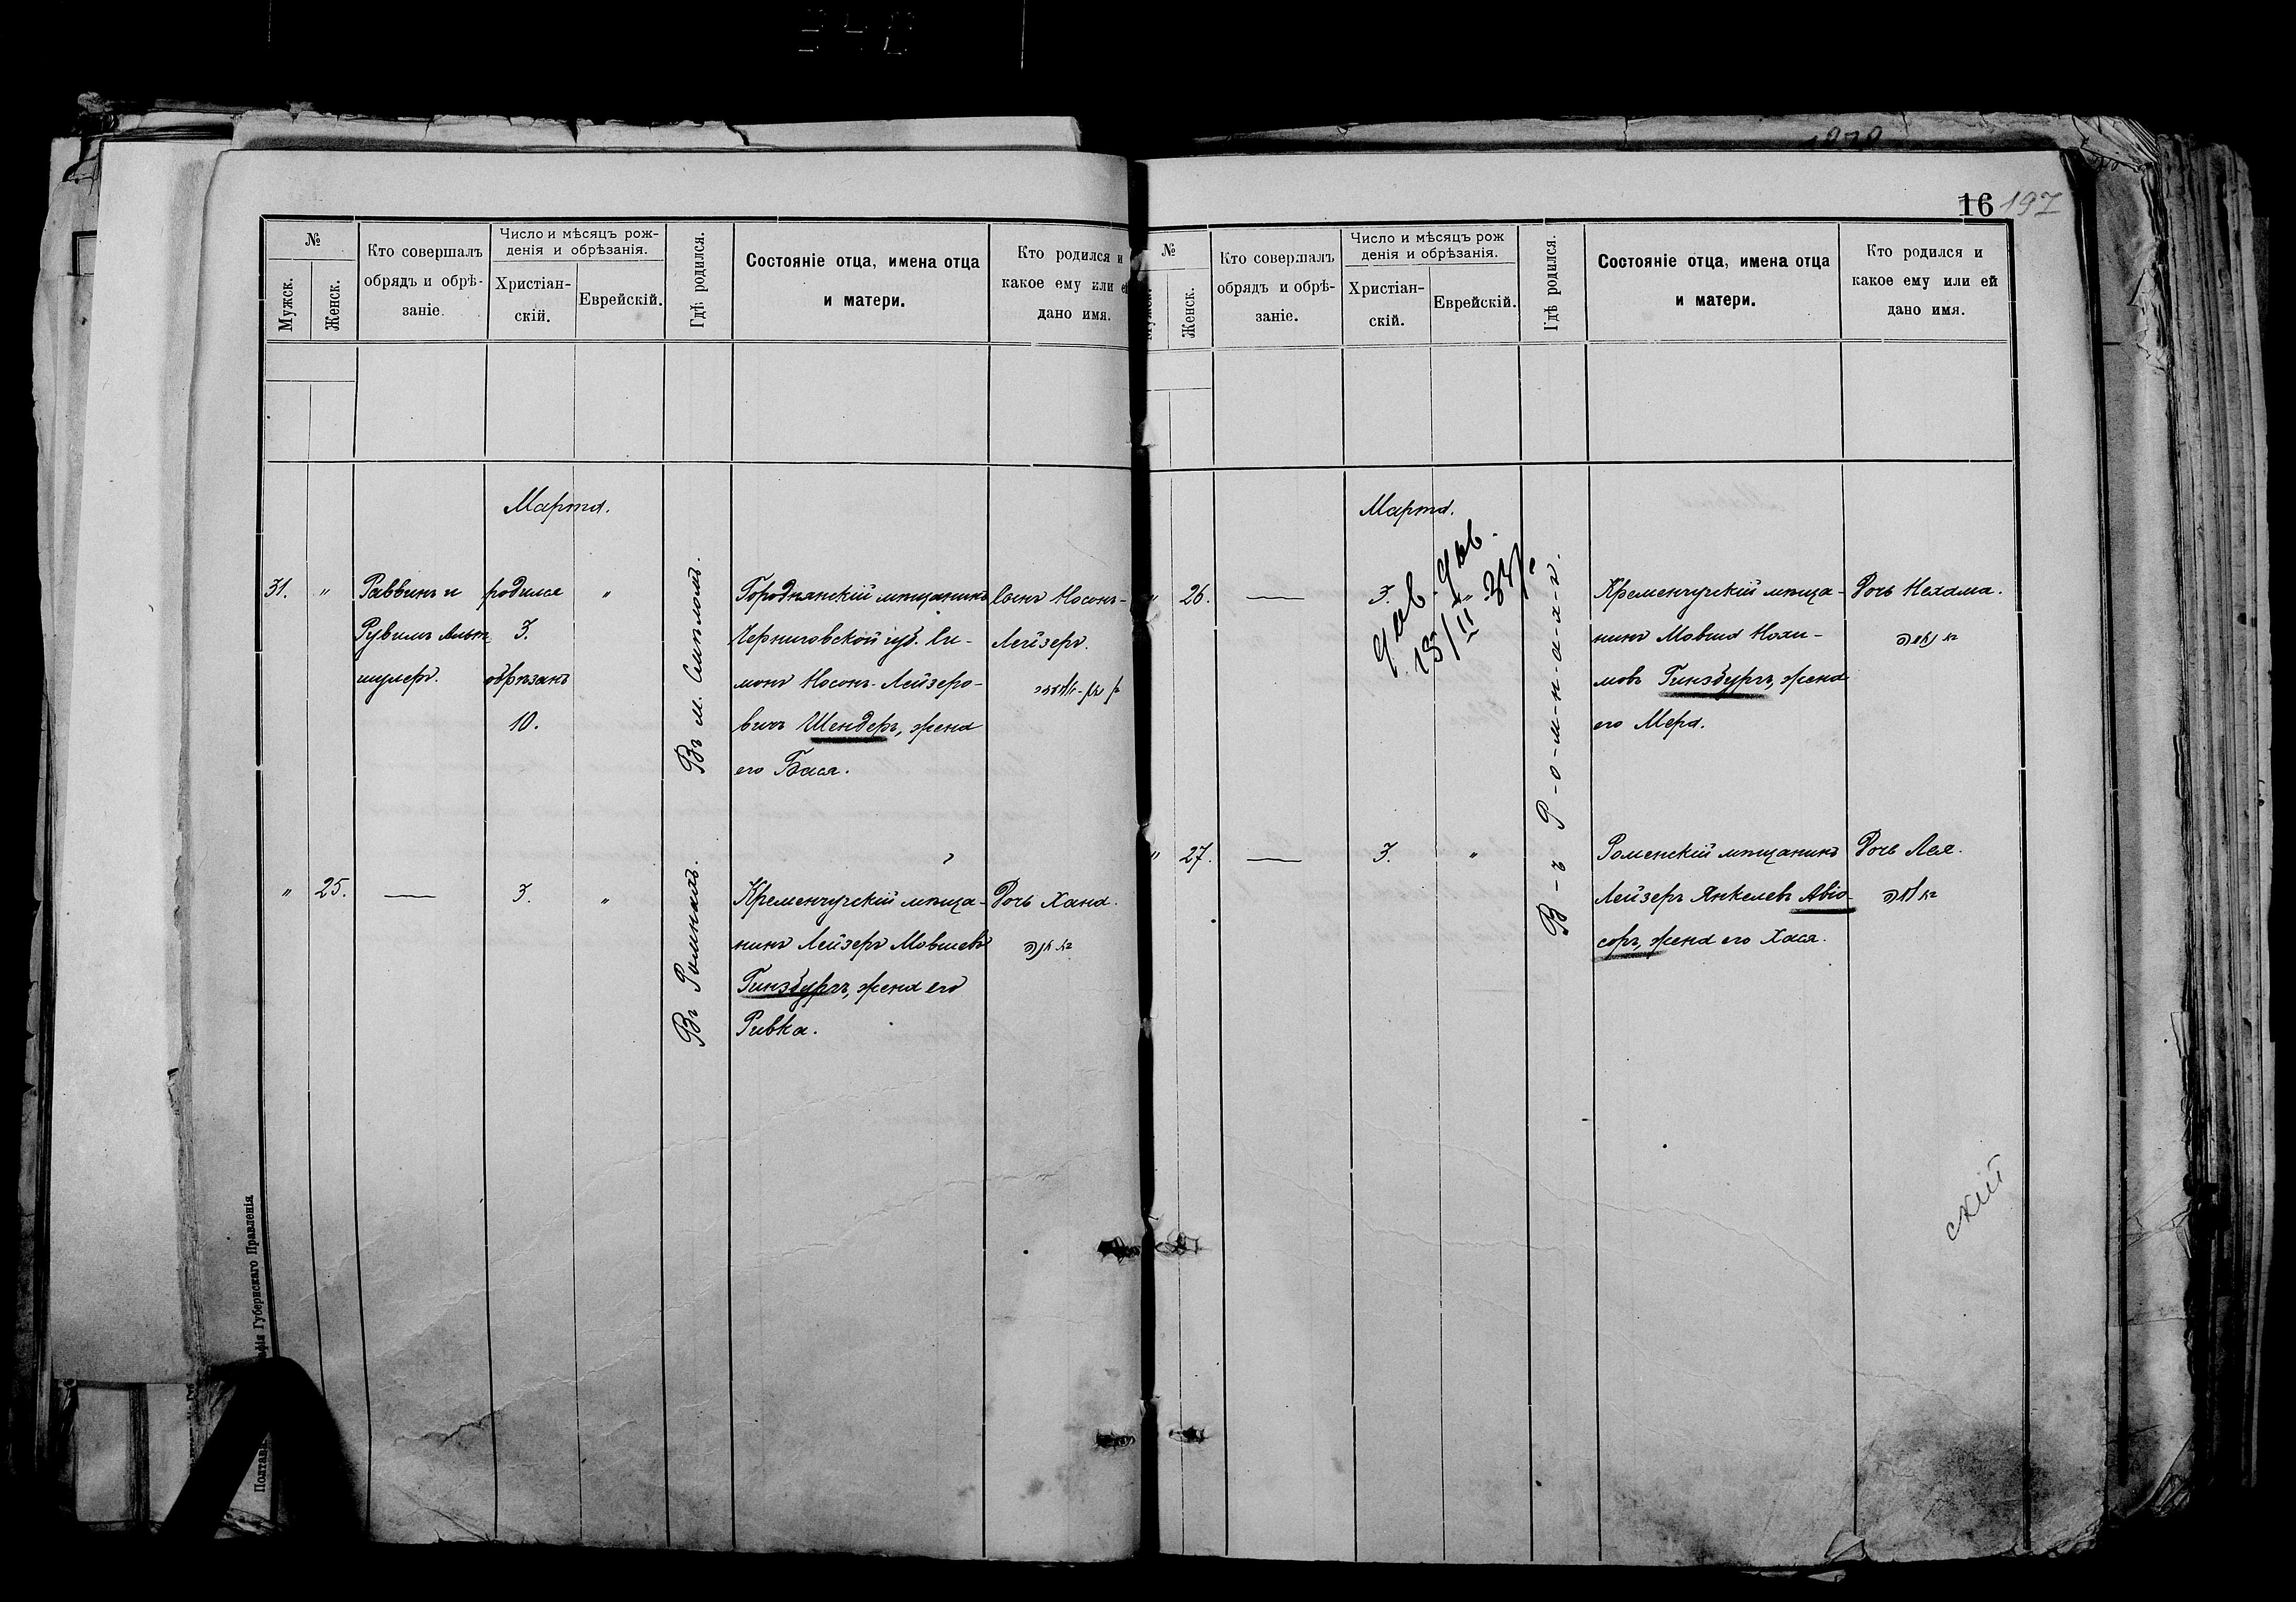 16 197
№
Мужск.
Женск.
Кто совершалъ
обрядъ и обрѣ-
заніе.
Число и мѣсяцъ рож-
денія и обрѣзанія.
Христіан-
скій.
Еврейскій.
Гдѣ родился.
Состояніе отца, имена отца
и матери.
Кто родился и
какое ему или ей
дано имя.
Марта.
31.
"
Раввинъ и
Рувимъ Альт
шулеръ.
родился
3.
обрѣзанъ
10.
"
Въ м. Смѣломъ.
Городнянскій мѣщанинъ
Черниговской губ. Си-
монъ Носонъ-Лейзеро-
вичъ Шендеръ, жена
его Бася.
Сынъ Носонъ-
Лейзеръ.
"
25.
3.
"
Въ Ромнахъ.
Кременчугскій мѣща-
нинъ Лейзеръ Мовшевъ
Гинзбургъ, жена его
Ривка.
Дочь Хана.
חנה
№
Женск.
Кто совершалъ
обрядъ и обрѣ-
заніе.
Число и мѣсяцъ рож
денія и обрѣзанія.
Христіан-
скій.
Еврейскій.
Гдѣ родился.
Состояніе отца, имена отца
и матери.
Кто родился и
какое ему или ей
дано имя.
Марта.
"
26.
3.
Въ Р-о-м-н-а-х-ъ.
Кременчугскій мѣща-
нинъ Мовша Нохи-
мовъ Гинзбургъ, жена
его Мера.
Дочь Нехама.
נחמה
"
27.
3.
"
Роменскій мѣщанинъ
Лейзеръ Янкелевъ Авіо-
соръ, жена его Хася.
Дочь Лея.
לאה
скій
Губернскаго Правленія